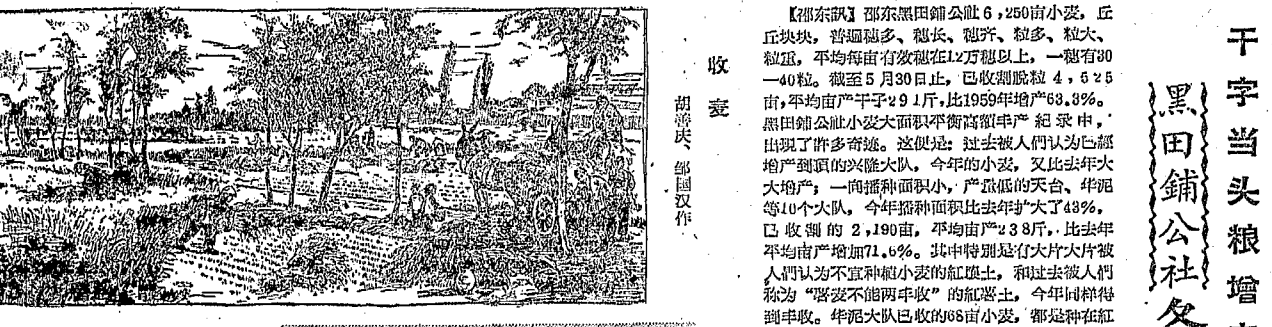 干字当头粮增
黑田鋪公社
【邵东訊】邵东黑田鋪公社6，250亩小麦，丘
丘块块，普遍穗多、穗长、穗齐、粒多、粒大、
粒重，平均每亩有效穗在12万穗以上，一穗有30
—40粒。截至5月30日止，已收割脫粒4，525
亩，平均亩产干子291斤，比1959年增产63.3%。
黑田鋪公社小麦大面积平衡高額丰产紀录中，
出現了許多奇迹。这便是：过去被人們认为已經
增产到頂的兴隆大队，今年的小麦，又比去年大
大增产；一向播种面积小，产量低的天台、华泥
等10个大队，今年播种面积比去年扩大了43%，
已收割的2，190亩，平均亩产238斤，比去年
平均亩产增加71.6%。其中特別是有大片大片被
人們认为不宜种植小麦的紅壤土，和过去被人們
称为“薯麦不能两丰收”的紅薯土，今年同样得
到丰收。华泥大队已收的68亩小麦，都是种在紅
收麦
胡善庆、邹国汉作